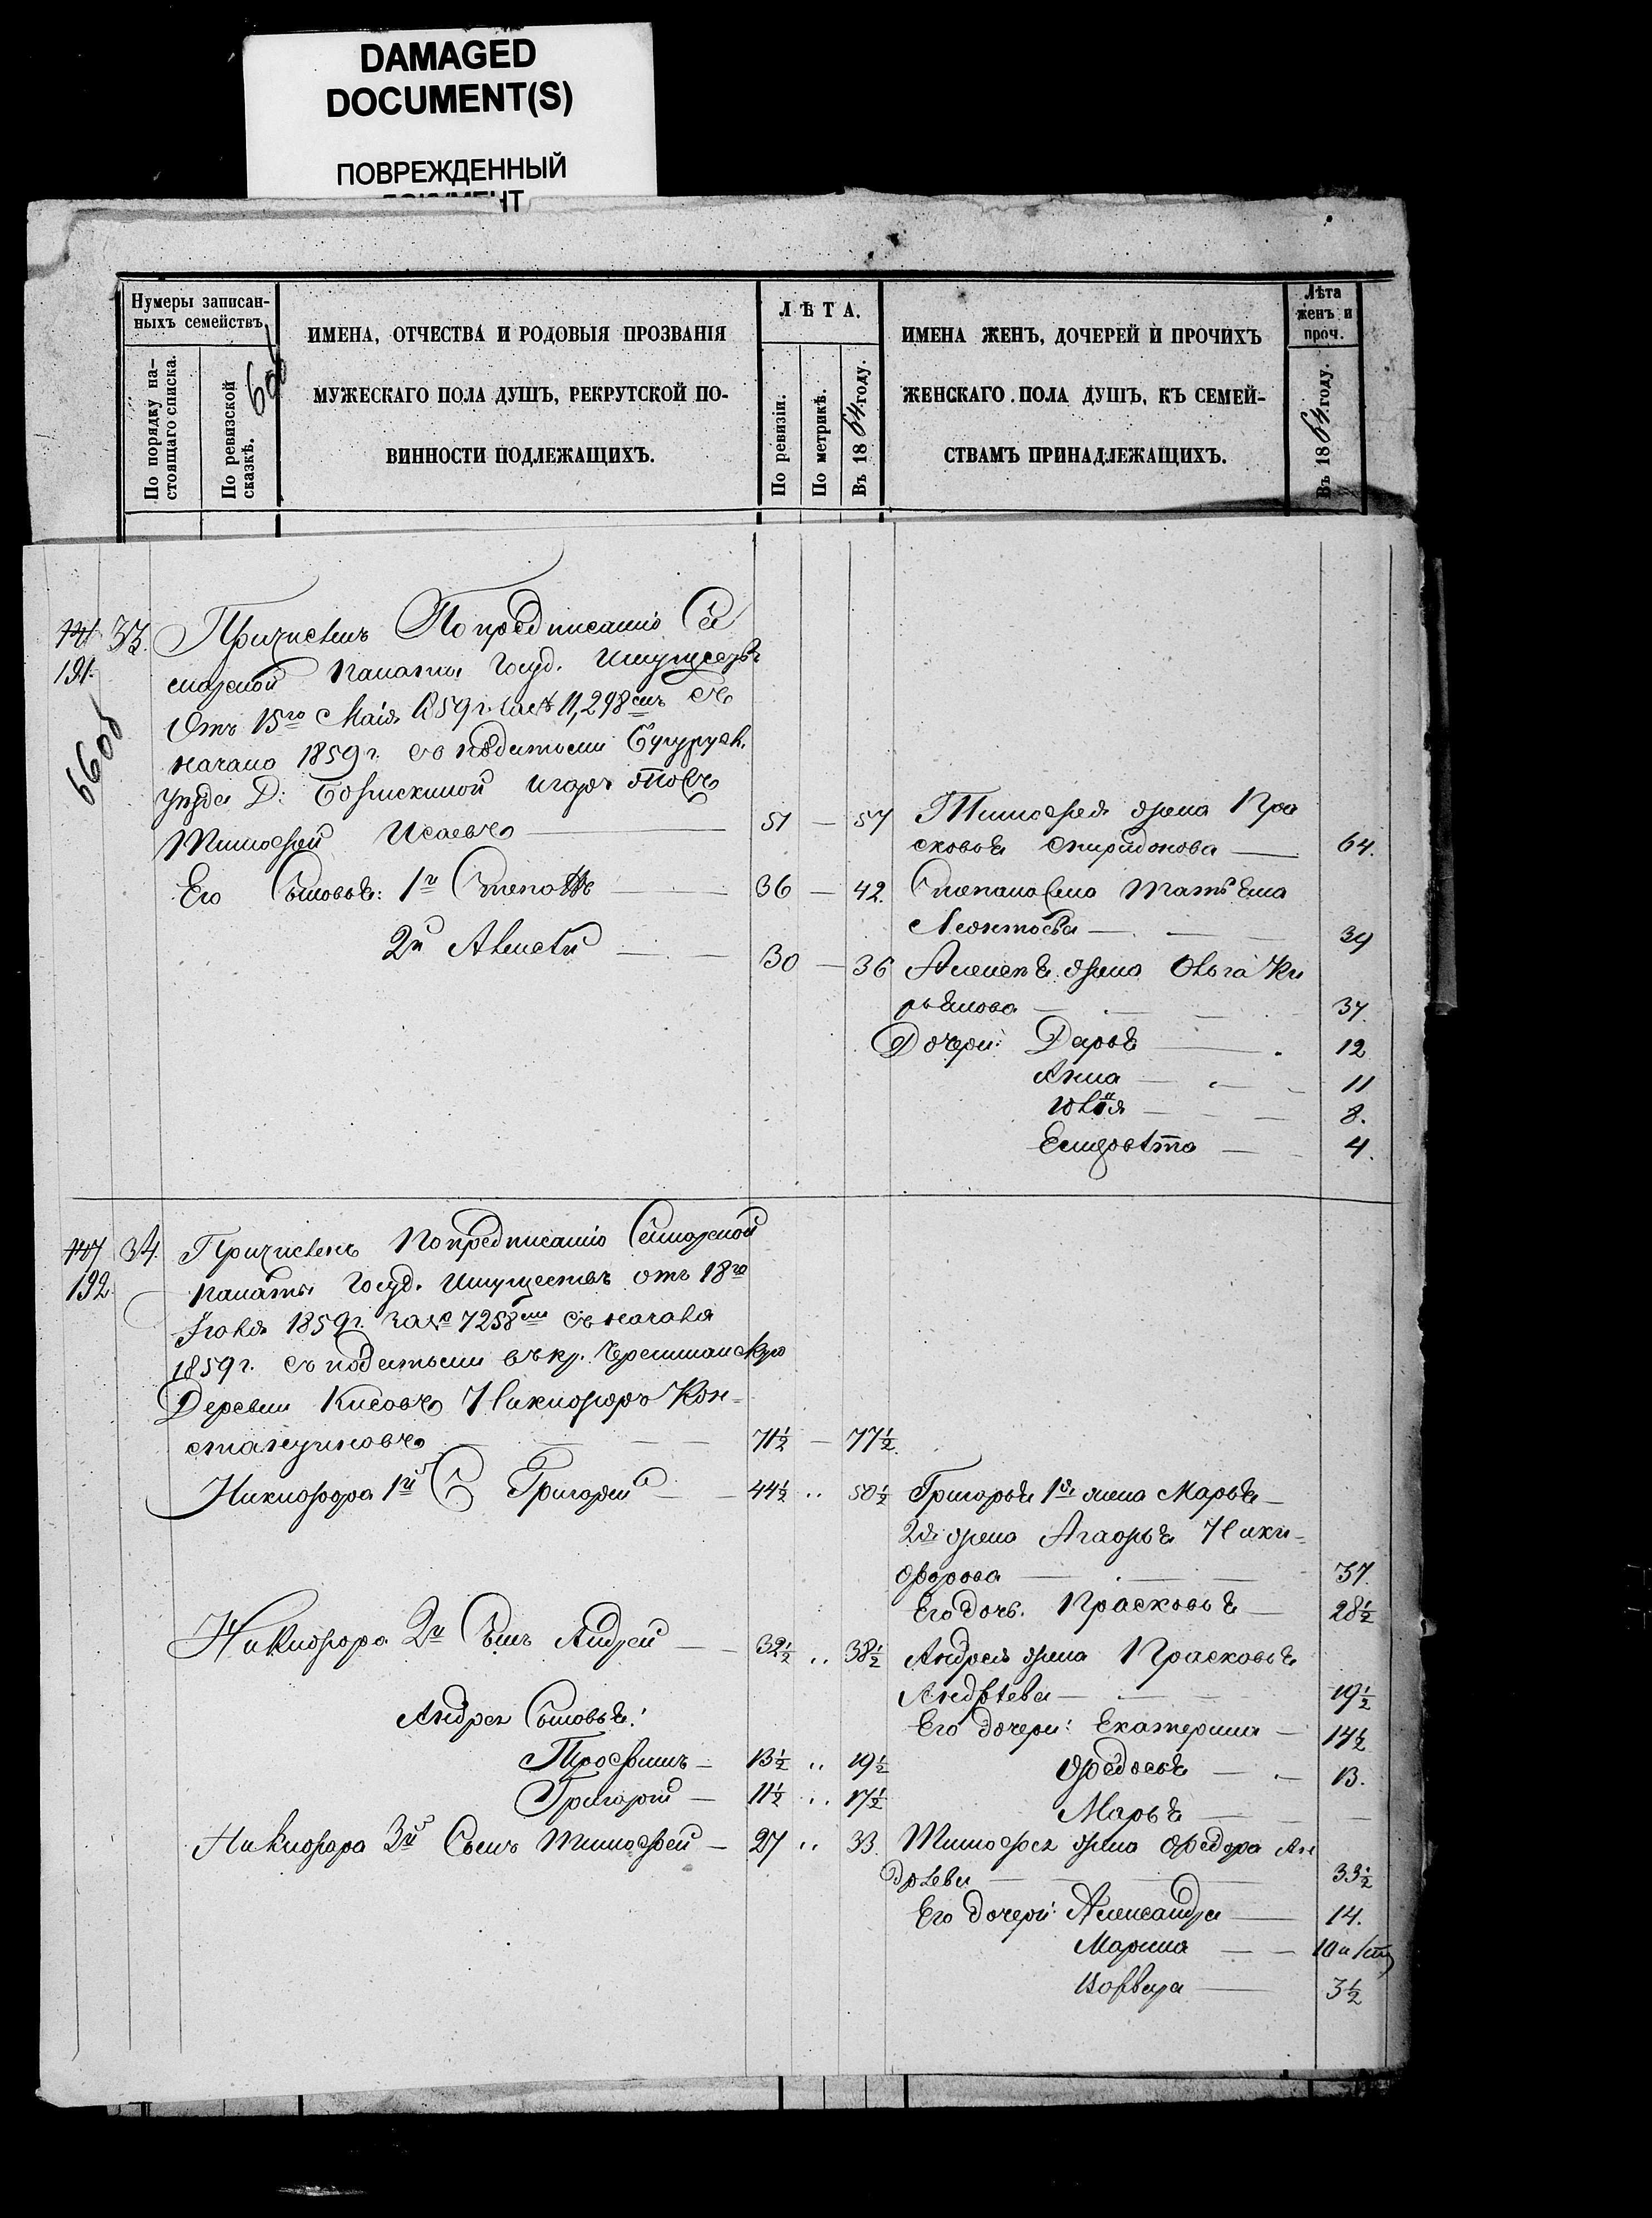 DAMAGED
DOCUMENT(S)
ПОВРЕЖДЕННЫЙ
Нумеры записан-
ныхъ семействъ.
По порядку на-
стоящаго списка.
По ревизской
сказкѣ.
ИМЕНА, ОТЧЕСТВА И РОДОВЫЯ ПРОЗВАНІЯ
МУЖЕСКАГО ПОЛА ДУШЪ, РЕКРУТСКОЙ ПО-
ВИННОСТИ ПОДЛЕЖАЩИХЪ.
ЛѢТА.
По ревизіи.
По метрикѣ.
Въ 1864 году.
ИМЕНА ЖЕНЪ, ДОЧЕРЕЙ И ПРОЧИХЪ
ЖЕНСКАГО ПОЛА ДУШЪ, КЪ СЕМЕЙ-
СТВАМЪ ПРИНАДЛЕЖАЩИХЪ.
Лѣта
женъ и
проч.
Въ 1864 году.
33. Причислен По предписанію Са
191.
марской Палаты Госуд. Имуществъ
Отъ 15го Маія 1859 г. за № 11,298 съ
начала 1859 г. съ податьми Бугурусл.
уѣзда Д:
Тимофей Исаевъ 51 — 57 Тимофея жена Пра
сковья Спиридонова — 64.
Его Сыновья: 1й Степанъ 36 — 42. Степана жена Татьяна
Леонтьева — 39
2й Алексѣй 30 — 36 Алексѣя жена Ольга Ки
рьянова — 37.
Дочери: Дарья 12
Анна — 11
Юлія — 8.
Елизавѣта — 4.
34. Причисленъ По предписанію Самарской
192.
Палаты Госуд. Имуществъ отъ 18го
Іюля 1859 г. за № 7258 съ начала
1859 г. съ податьми въ кр. Черемшанскую
Деревни Никифоръ Кон-
стантиновъ 71½ — 77½.
Никифора 1й С Григорій 44½ " 50½ Григорья 1я жена Марья —
2я жена Агафья Ники-
форова — 37.
Его дочь. Прасковья — 28½
Никифора 2й Сынъ Андрей — 32½ " 38½ Андрея жена Прасковья
Андрѣева — 19½
Андрея Сыновья: Его дочери: Екатерина — 14½
Трофимъ — 13½ " 19½ Федосья — 13.
Григорій — 11½ " 17½ Марья — —
Никифора 3й Сынъ Тимофей — 27 " 33. Тимофея жена Федора Ан
дрѣева 33½
Его дочери: Александра — 14.
Марина — 10
Варвара — 3½